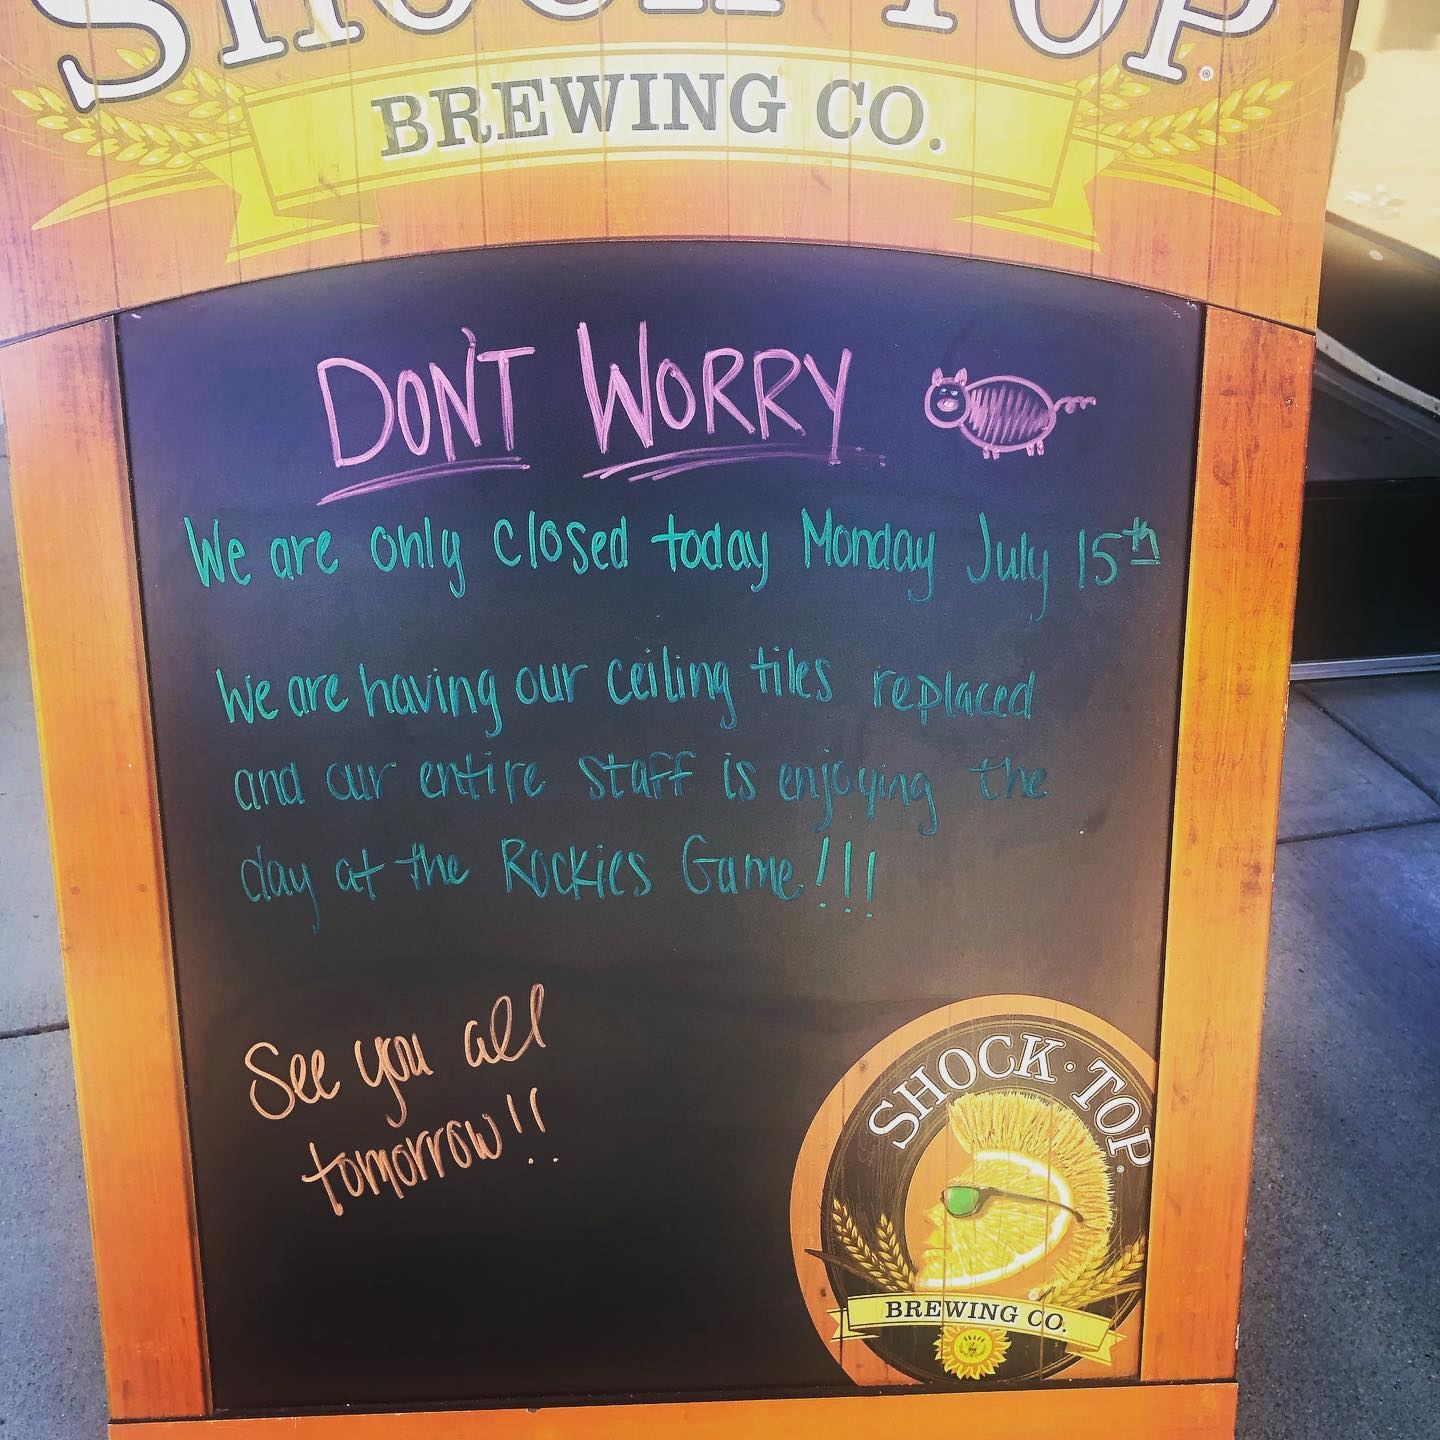 SHOCK TOP®
BREWING CO.
DON'T WORRY
We are only closed today Monday July 15th
We are having our ceiling tiles replaced
and our entire staff is enjoying the
day at the Rockies Game!!!
See you all
tomorrow!!
SHOCK·TOP®
BREWING CO.